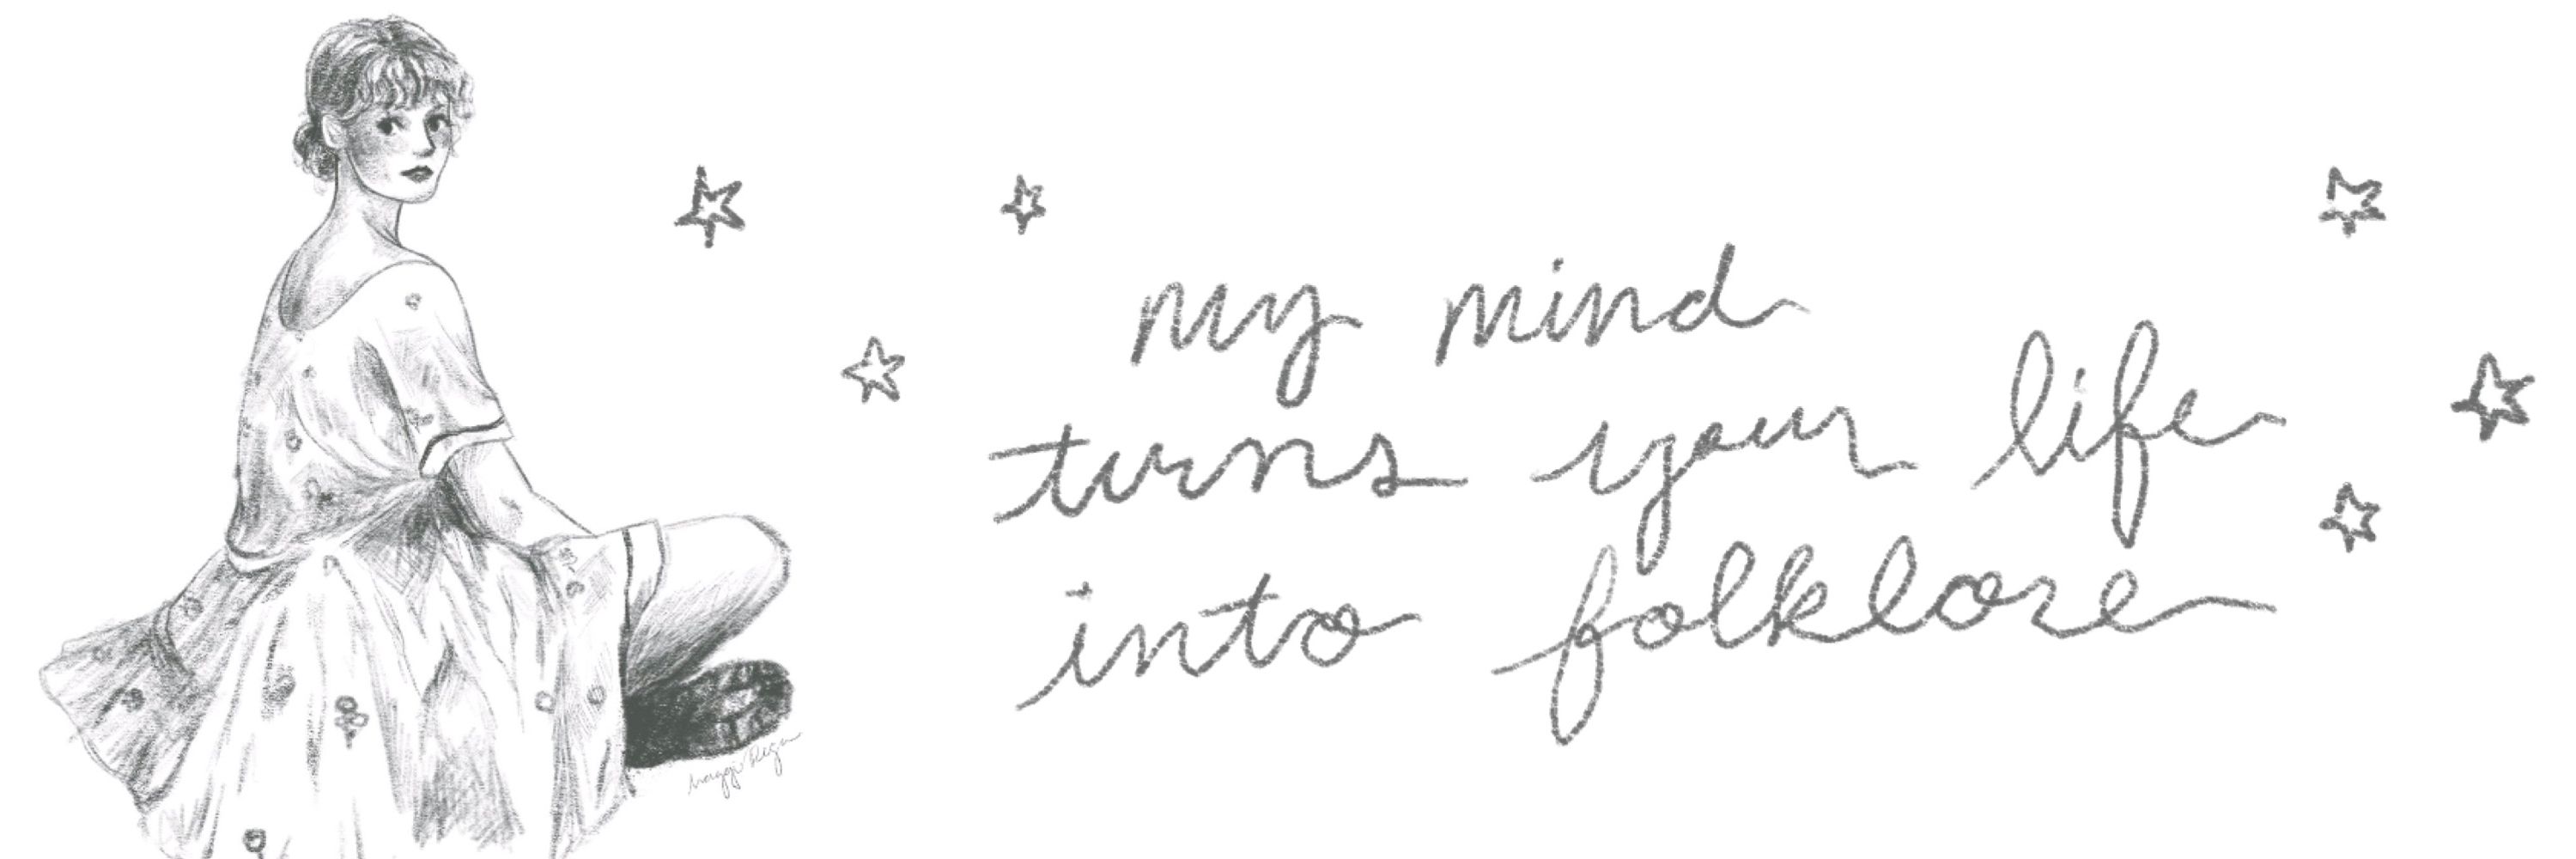 my mind
turns your life
into folklore